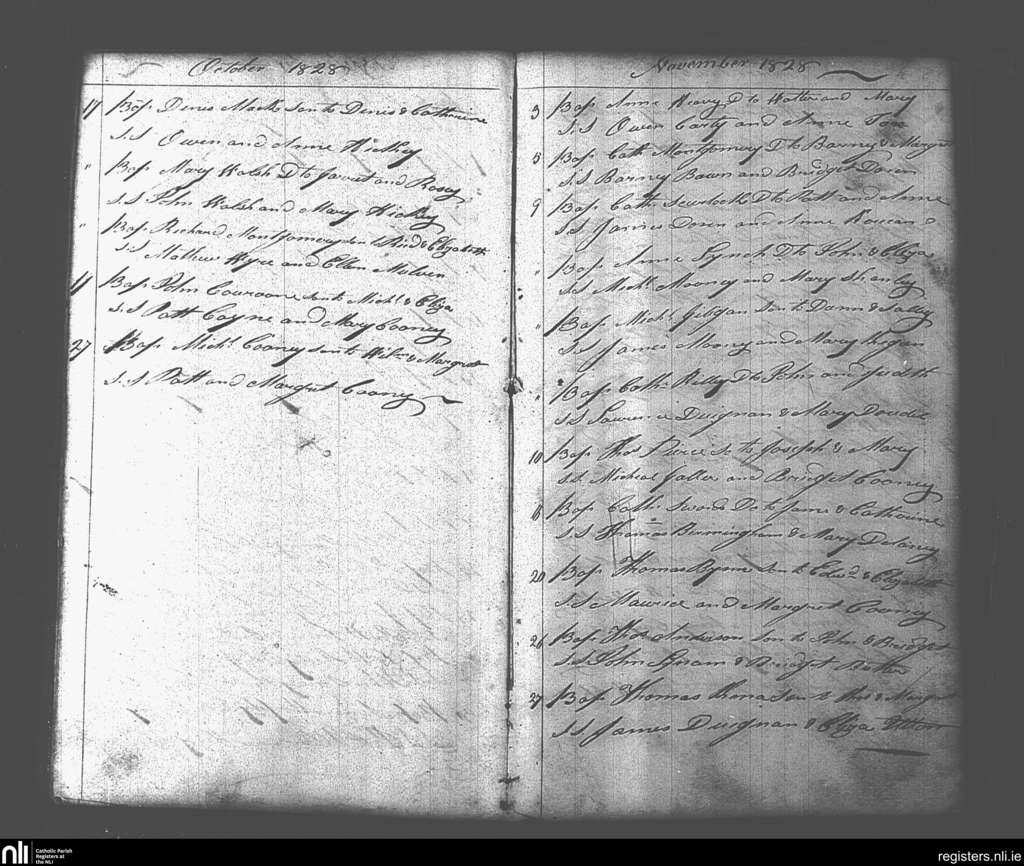 October 1828
17 Bap. Denis Mack son to Denis & Catherine
S.S Owen and Anne Hickey
" Bap. Mary Walsh D to Garret and Rosey
S.S John Walsh and Mary Hickey
" Bap. Richard Montgomery son to Rich'd & Elizabeth
S.S Mathew and Ellen
Bap. John son to Mich'l & Eliza
S.S Patt Coyne and Mary Cooney
27 Bap. Mich'l Cooney son to Wil'm & Margret
S.S Patt and Margret Cooney
November 1828
3 Bap. Anne Heavy D to Walter and Mary
S.S Owen Carty and Anne
8 Bap. Cath. Montgomery D to Barney & Margret
S.S Barney Bawn and Bridget Doren
9 Bap. Cath. D to Patt and Anne
S.S James Doren and Anne
" Bap. Anne Lynch D to John & Eliza
S.S Mich'l Mooney and Mary Shanley
" Bap. Mich'l Gibgan son to Dann & Sally
S.S James Mooney and Mary Regan
" Bap. Cath. Kelly D to Peter and Judith
S.S Lawrence Duignan & Mary
10 Bap. Tho's Pierce S to Joseph & Mary
S.S Micheal and Bridget Cooney
Bap. Cath. Swords D to James & Catherine
S.S Thomas Burmingham & Mary Delaney
20 Bap. Thomas Byrne son to Edw'd & Elizabeth
S.S Maurice and Margret Cooney
26 Bap. Tho's Anderson son to John & Bridget
S.S John & Bridget
27 Bap. Thomas son to Tho's & Margret
S.S James Duignan & Eliza
nli
Catholic Parish
Registers at
the NLI
registers.nli.ie